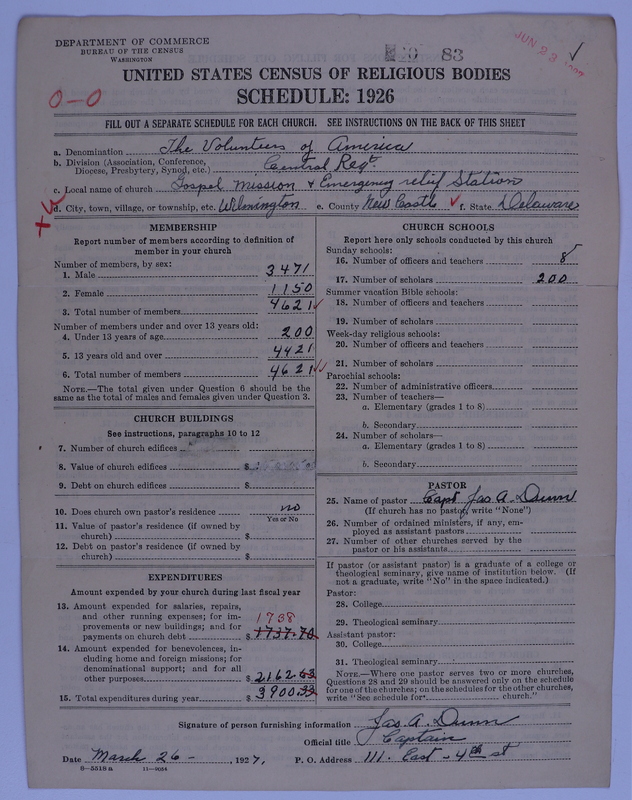 DEPARTMENT OF COMMERCE
BUREAU OF THE CENSUS
WASHINGTON
83
JUN 23
UNITED STATES CENSUS OF RELIGIOUS BODIES
SCHEDULE: 1926
0—0
FILL OUT A SEPARATE SCHEDULE FOR EACH CHURCH. SEE INSTRUCTIONS ON THE BACK OF THIS SHEET
a. Denomination The Volunteers of America
b. Division (Association, Conference, Diocese, Presbytery, Synod, etc.) Central Regt.
c. Local name of church Gospel Mission & Emergency relief Station
d. City, town, village, or township, etc. Wilmington e. County New Castle f. State Delaware
MEMBERSHIP
Report number of members according to definition of
member in your church
Number of members, by sex:
1. Male 3471
2. Female 1150
3. Total number of members 4621
Number of members under and over 13 years old:
4. Under 13 years of age 200
5. 13 years old and over 4421
6. Total number of members 4621
NOTE.—The total given under Question 6 should be the
same as the total of males and females given under Question 3.
CHURCH BUILDINGS
See instructions, paragraphs 10 to 12
7. Number of church edifices
8. Value of church edifices $
9. Debt on church edifices $
10. Does church own pastor's residence no
Yes or No
11. Value of pastor's residence (if owned by
church) $
12. Debt on pastor's residence (if owned by
church) $
EXPENDITURES
Amount expended by your church during last fiscal year
13. Amount expended for salaries, repairs,
and other running expenses; for im-
provements or new buildings; and for
payments on church debt $ 1737.70
1738
14. Amount expended for benevolences, in-
cluding home and foreign missions; for
denominational support; and for all
other purposes $ 2162.63
15. Total expenditures during year $ 3900.33
CHURCH SCHOOLS
Report here only schools conducted by this church
Sunday schools:
16. Number of officers and teachers 8
17. Number of scholars 200
Summer vacation Bible schools:
18. Number of officers and teachers
19. Number of scholars
Week-day religious schools:
20. Number of officers and teachers
21. Number of scholars
Parochial schools:
22. Number of administrative officers
23. Number of teachers—
a. Elementary (grades 1 to 8)
b. Secondary
24. Number of scholars—
a. Elementary (grades 1 to 8)
b. Secondary
PASTOR
25. Name of pastor Capt Jas A. Dunn
(If church has no pastor, write "None")
26. Number of ordained ministers, if any, em-
ployed as assistant pastors
27. Number of other churches served by the
pastor or his assistants
If pastor (or assistant pastor) is a graduate of a college or
theological seminary, give name of institution below. (If
not a graduate, write "No" in the space indicated.)
Pastor:
28. College
29. Theological seminary
Assistant pastor:
30. College
31. Theological seminary
NOTE.—Where one pastor serves two or more churches,
Questions 28 and 29 should be answered only on the schedule
for one of the churches; on the schedules for the other churches,
write "See schedule for church."
Signature of person furnishing information Jas. A. Dunn
Official title Captain
Date March 26 - , 1927. P. O. Address 111. East - 4th st
6—5518a 11—9084